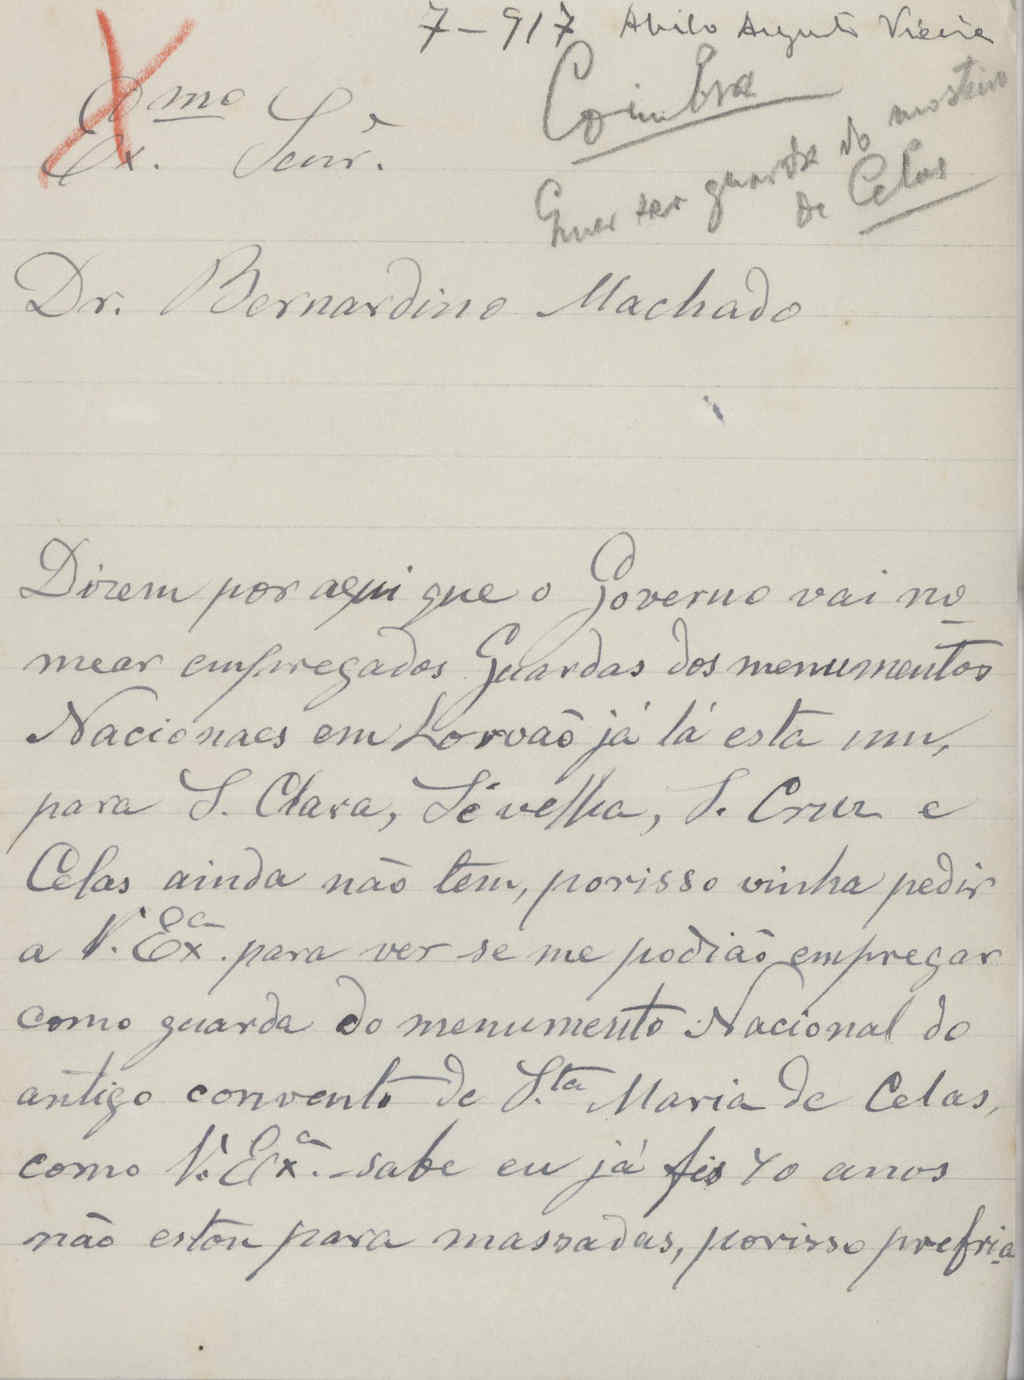 7-917 Abilio Augusto Vieira
Coimbra
Quer ser guarda do mosteiro
de Celas
Ex.mo Senr.
Dr. Bernardino Machado
Dizem por aqui que o Governo vai no
mear empregados Guardas dos menumentos
Nacionaes em Lorvaõ já lá esta um,
para S. Clara, Sé velha, S. Cruz e
Celas ainda não tem, porisso vinha pedir
a V. Exª. para ver se me podiaõ empregar
como guarda do menumento Nacional do
antigo convento de S.ta Maria de Celas,
como V. Exª. sabe eu já fis 40 anos
não estou para massadas, porisso prefria